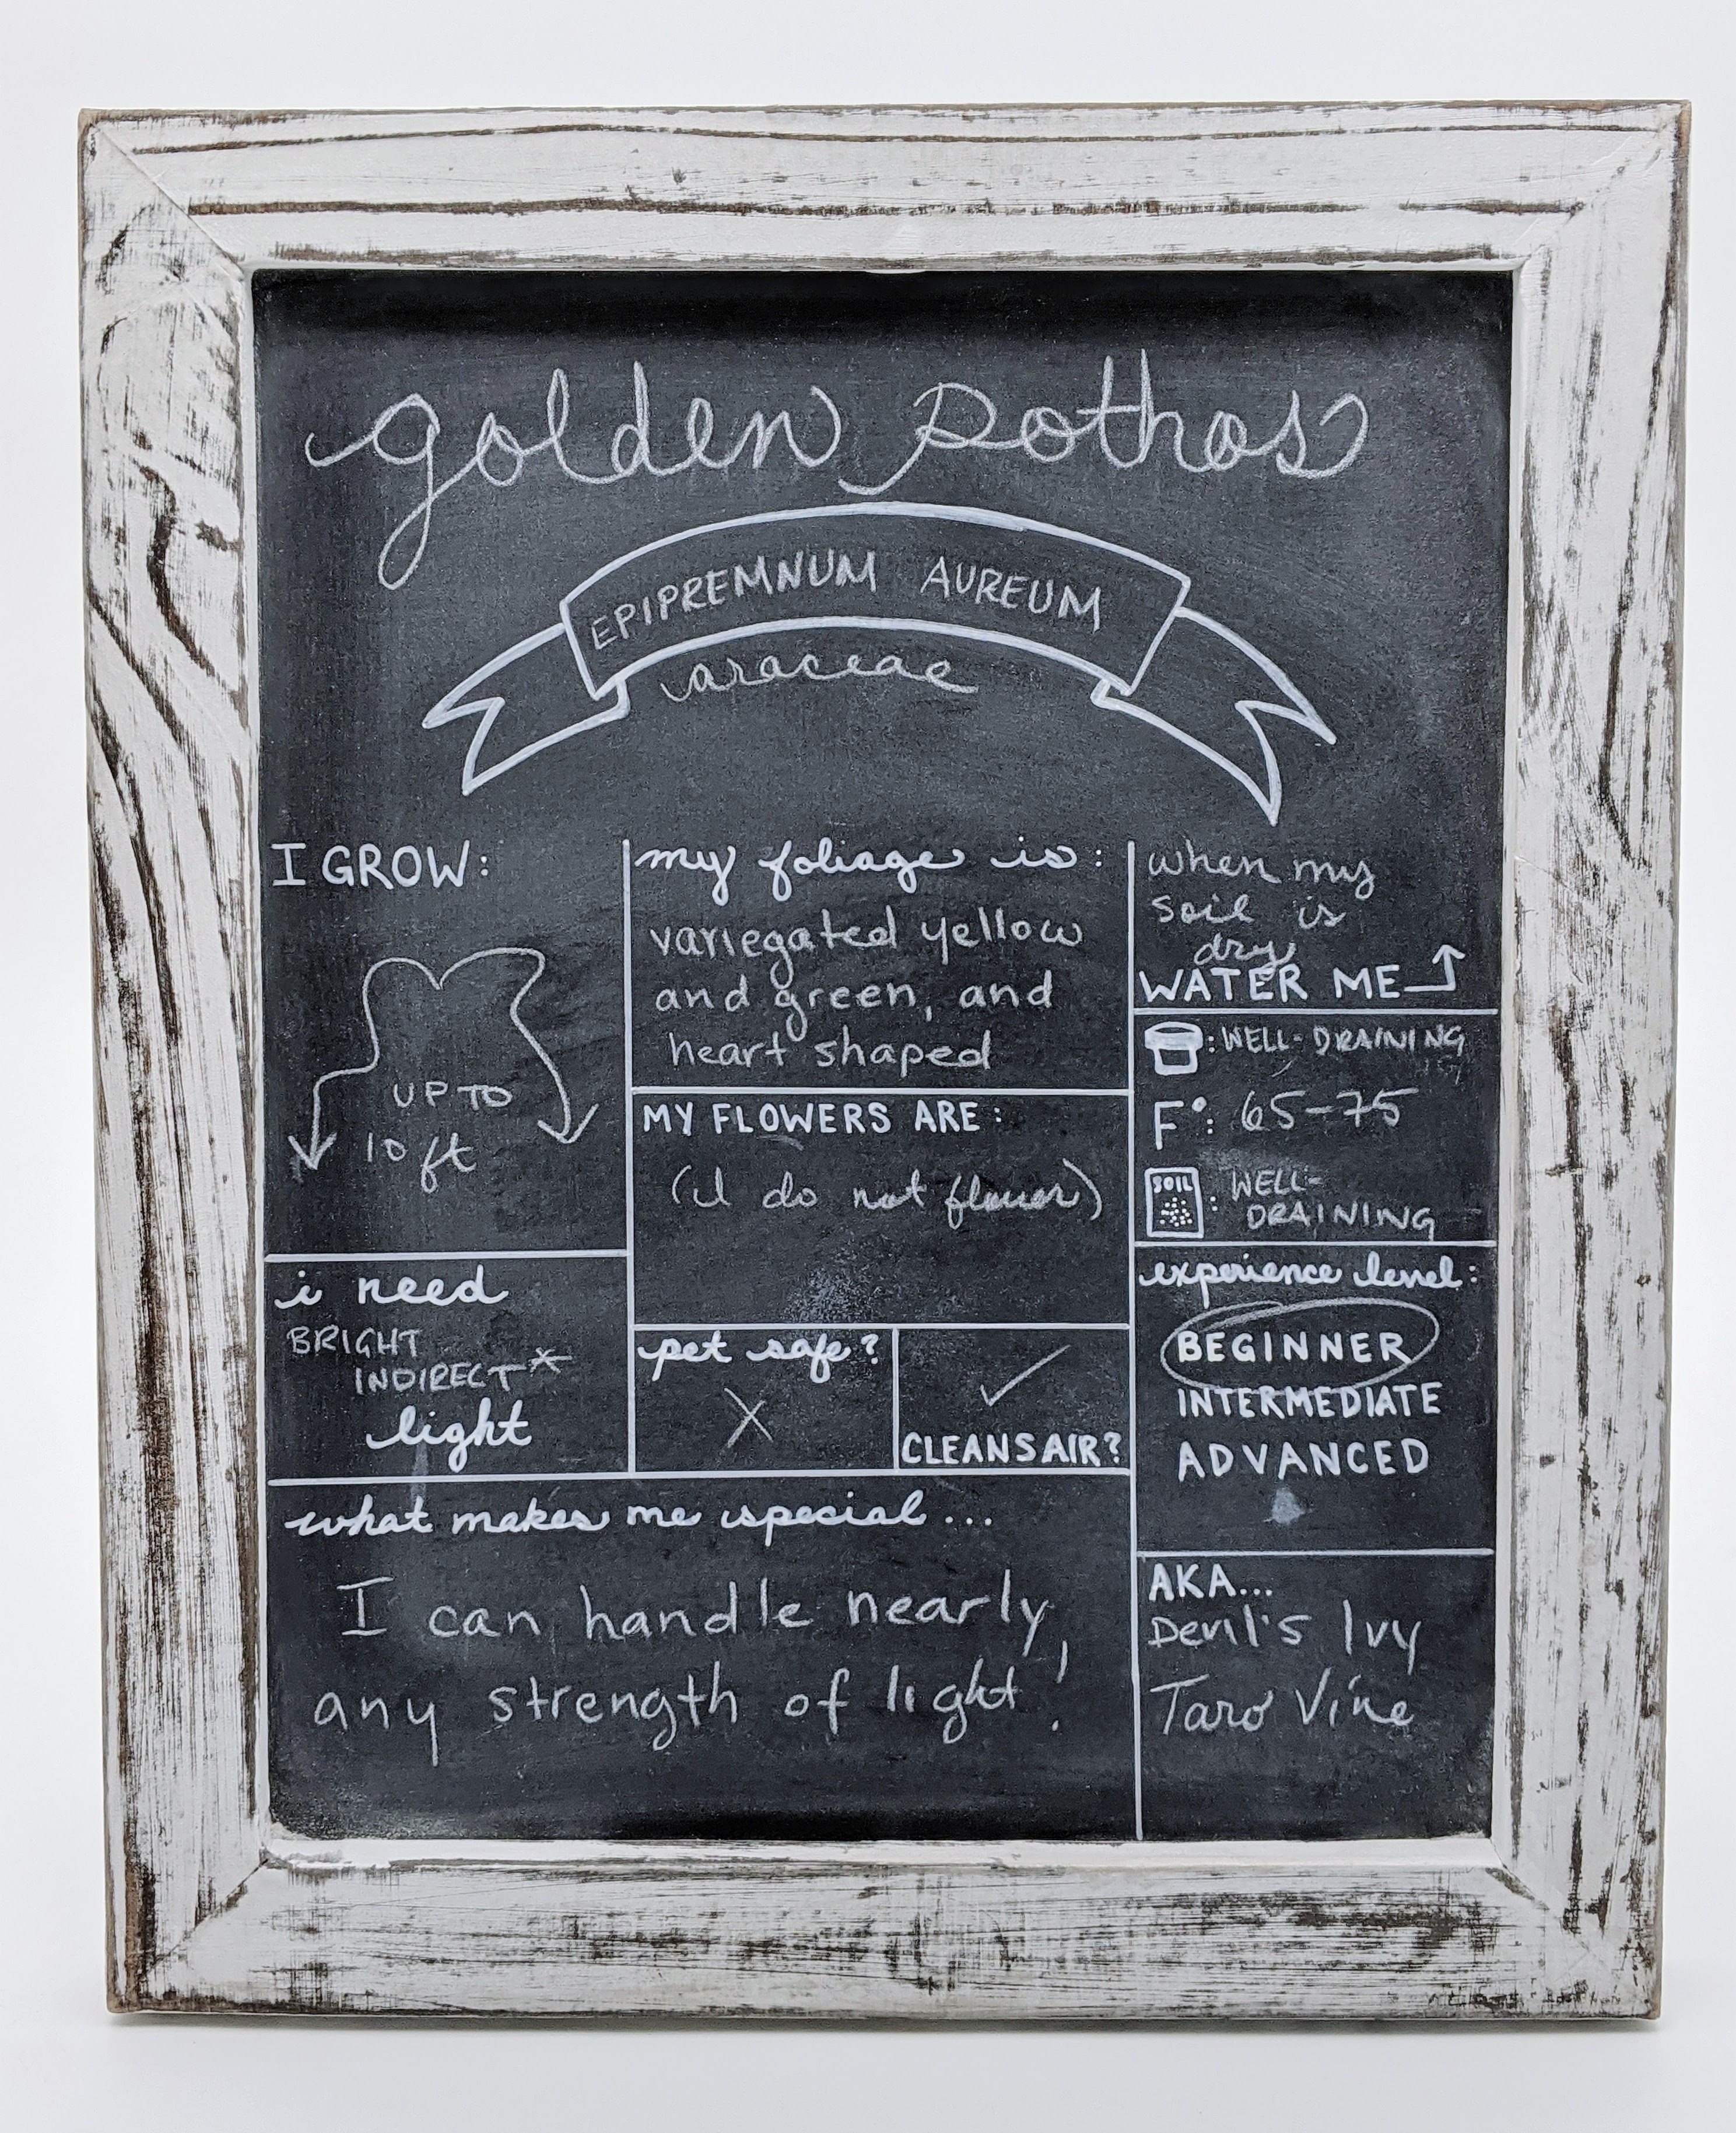 golden pothos
EPIPREMNUM AUREUM
araceae
I GROW:
UP TO
10 ft
i need
BRIGHT
INDIRECT*
light
my foliage is:
variegated yellow
and green, and
heart shaped
MY FLOWERS ARE:
(I do not flower)
pet safe?
X
✓
CLEANS AIR?
when my
soil is
dry
WATER ME
: WELL-DRAINING
F°: 65-75
SOIL : WELL-
DRAINING
experience level:
BEGINNER
INTERMEDIATE
ADVANCED
what makes me special...
I can handle nearly
any strength of light!
AKA...
Devil's Ivy
Taro Vine